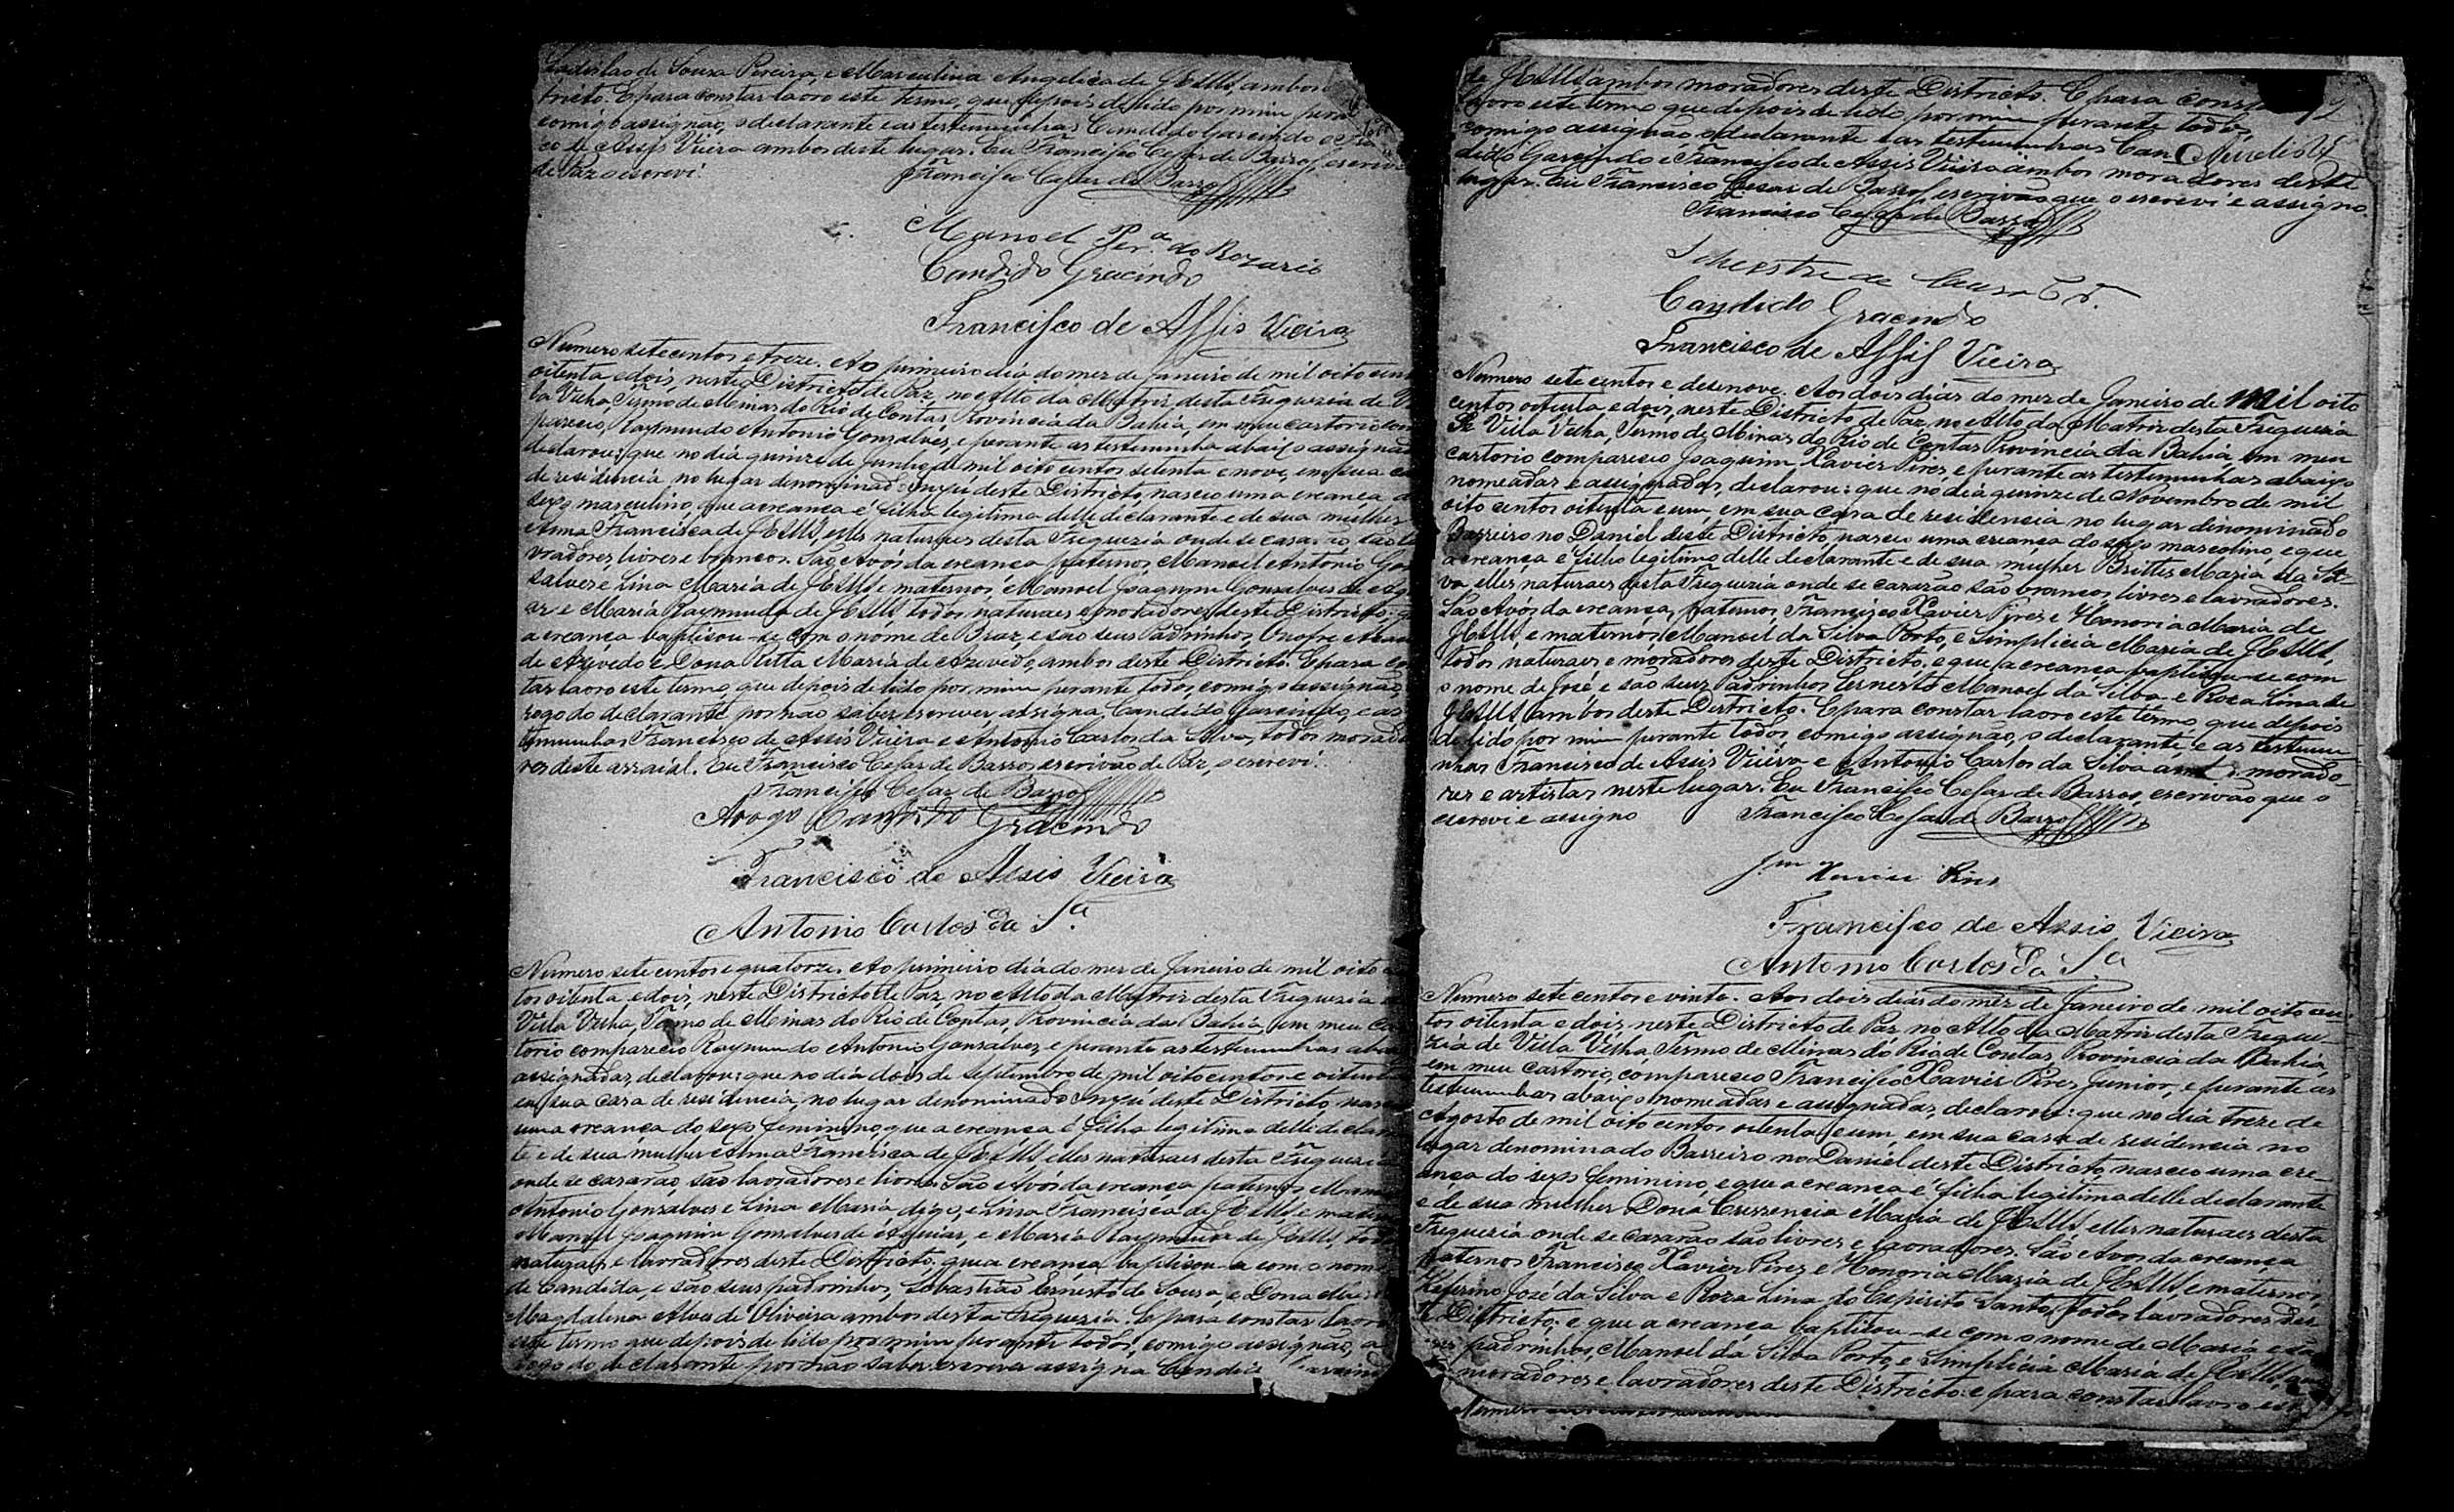 Ladislao de Sousa Pereira, e Marculina Angelica de JESUS, ambos
tricto. E para constar lavro este termo, que depois de lido por mim pera
comigo assignão, o declarante e as testemunhas Candido Garcindo e Fra
co de Assis Vieira ambos deste lugar. Eu Francisco Cesar de Barros, escriv
de Paz o escrevi.
Francisco Cesar de Barros
Manoel Per.ª do Rozario
Candido Gracindo
Francisco de Assis Vieira
Numero sete centos e treze. Ao primeiro dia do mez de Janeiro de mil oito cent
oitenta e dois, neste Districto de Paz, no Alto da Matriz desta Freguezia de V
la Velha, Termo de Minas do Rio de Contas, Provincia da Bahia, em meu cartorio com
pareceo, Raymundo Antonio Gonsalves, e perante as testemunha abaixo assignad
declarou: que no dia quinze de Junho de mil oito centos setenta e nove, em sua ca
de residencia, no lugar denominado deste Districto, nasceo uma creança d
sexo masculino, que a creança é filha legitima delle declarante e de sua mulher
Anna Francisca de JESUS, elles naturaes desta Freguezia onde se casarão, são la
vradores, livres e brancos. São Avós da creança paternos, Manoel Antonio Gon
salves e Lina Maria de JESUS e maternos, Manoel Joaquim Gonsalves de Agui
ar e Maria Raymunda de JESUS, todos naturaes e moradores deste Districto: q
a creança baptisou-se com o nome de Braz, e são seus Padrinhos, Onofre
de Azevedo e Dona Ritta Maria de Azevedo, ambos deste Districto. E para co
tar lavro este termo, que depois de lido por mim perante todos, comigo assignão,
rogo do declarante por não saber escrever, assigna Candido Garcindo, e as
temunhas Francisco de Assis Vieira e Antonio Carlos da Silva, todos morado
res deste arraial. Eu Francisco Cesar de Barros escrivão de Paz, o escrevi.
Francisco Cesar de Barros
Arogo Candido Gracindo
Francisco de Assis Vieira
Antonio Carlos da S.ª
Numero sete centos e quatorze. Ao primeiro dia do mez de Janeiro de mil oito c
tos oitenta e dois, neste Districto de Paz, no Alto da Matriz desta Freguezia
Villa Velha, Termo de Minas do Rio de Contas, Provincia da Bahia, em meu ca
torio compareceo Raymundo Antonio Gonsalves, e perante as testemunhas aba
assignadas, declarou: que no dia dois de Septembro de mil oito centos e oitent
em sua casa de residencia, no lugar denominado deste Districto, nas
uma creança do sexo feminino, que a creança é filha legitima delle declara
te e de sua mulher Anna Francisca de JESUS, elles naturaes desta Freguezia
onde se casarão, são lavradores e livres. São Avós da creança paternos Mano
Antonio Gonsalves e Lina Maria digo, e Lina Francisca de JESUS, e mater
Manoel Joaquim Gonsalves de Aguiar, e Maria Raymunda de JESUS, tod
naturaes e lavradores deste Districto: que a creança baptisou-se com o nom
de Candida, e são seus padrinhos, Sebastião Ernesto de Sousa, e Dona Ma
Magdalina Alves de Oliveira ambos desta Freguezia. E para constar lavro
este termo que depois de lido por mim perante todos, comigo assignão, a
rogo do declarante por não saber escrever assigna Candid
de JESUS ambos moradores deste Districto. E para const
lavro este termo que depois de lido por mim perante todos,
comigo assignão, o declarante e as testemunhas Can
dido Garcindo e Francisco de Assis Vieira ambos moradores deste
lugar. Eu Francisco Cesar de Barros, escrivão que o escrevi e assigno.
Francisco Cesar de Barros
Candido Gracindo
Francisco de Assis Vieira
Numero sete centos e desenove. Aos dois dias do mez de Janeiro de mil oito
centos oitenta e dois, neste Districto de Paz, no Alto da Matriz desta Freguezia
de Villa Velha, Termo de Minas do Rio de Contas Provincia da Bahia, em meu
cartorio compareceo Joaquim Xavier Pires, e perante as testemunhas abaixo
nomeadas e assignadas, declarou: que no dia quinze de Novembro de mil
oito centos oitenta e um, em sua casa de residencia no lugar dinominado
Barreiro no Daniel deste Districto, nasceu uma creança do sexo mascolino, e que
a creança é filho legitimo delle declarante e de sua mulher Brittes Maria da Sil-
va elles naturaes desta Freguezia onde se casarão são brancos livres e lavradores.
São Avós da creança, paternos, Francisco Xavier Pires e Honoria Maria de
JESUS, e maternos, Manoel da Silva Porto, e Simplicia Maria de JESUS,
todos naturaes e moradores deste Districto: e que a creança baptisou-se com
o nome de José, e são seus Padrinhos Ernesto Manoel da Silva e Roza Lina de
JESUS, ambos deste Districto. E para constar lavro este termo, que depois
de lido por mim perante todos, comigo assignão, o declarante, e as testemu-
nhas Francisco de Assis Vieira e Antonio Carlos da Silva morado-
res e artistas neste lugar. Eu Francisco Cesar de Barros, escrivão que o
escrevi e assigno
Francisco Cesar de Barros
J.m Xavier Pires
Francisco de Assis Vieira
Antonio Carlos da S.ª
Numero sete centos e vinte. Aos dois dias do mez de Janeiro de mil oito cen-
tos oitenta e dois, neste Districto de Paz, no Alto da Matriz desta Fregue-
zia de Villa Velha, Termo de Minas do Rio de Contas, Provincia da Bahia,
em meu cartorio, compareceo Francisco Xavier Pires Junior, e perante as
testemunhas abaixo nomeadas e assignadas, declarou: que no dia treze de
Agosto de mil oito centos oitenta e um, em sua casa de residencia no
lugar denominado Barreiro no Daniel deste Districto, nasceo uma cre-
ança do sexo feminino, e que a creança é filha legitima delle declarante
e de sua mulher Dona Maria de JESUS, elles naturaes desta
Freguezia onde se casarão são livres e lavradores. São Avós da creança
paternos Francisco Xavier Pires e Honoria Maria de JESUS, e maternos,
Zeferino José da Silva e Roza Lina do Espirito Santo, todos lavradores des
te Districto: e que a creança baptisou-se com o nome de Maria e são
seus padrinhos, Manoel da Silva Porto, e Simplicia Maria de JESUS,
moradores e lavradores deste Districto: e para constar lavro este
Numero